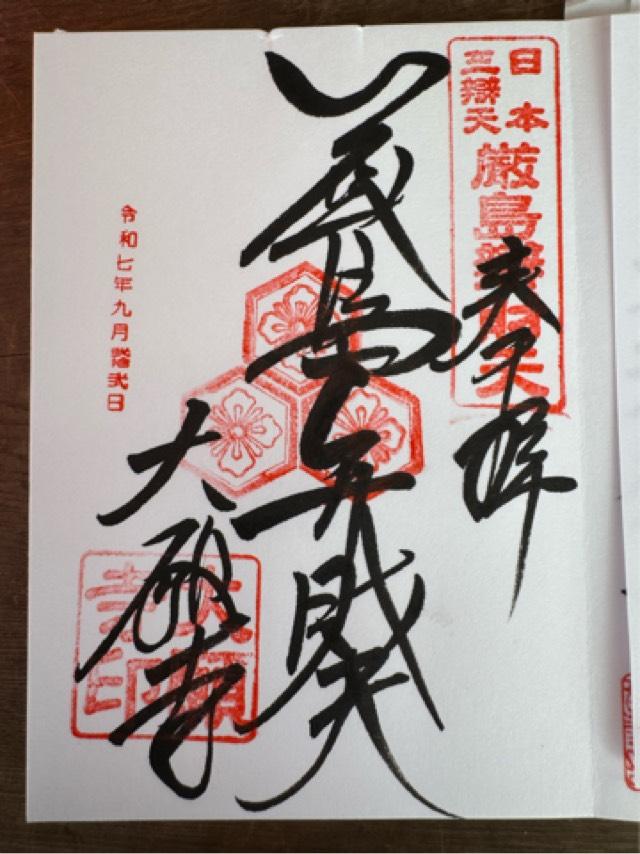 日本
三辯天
厳島辯財天
奉拝
厳島弁財天
大願寺
大願
寺印
令和七年九月拾弐日